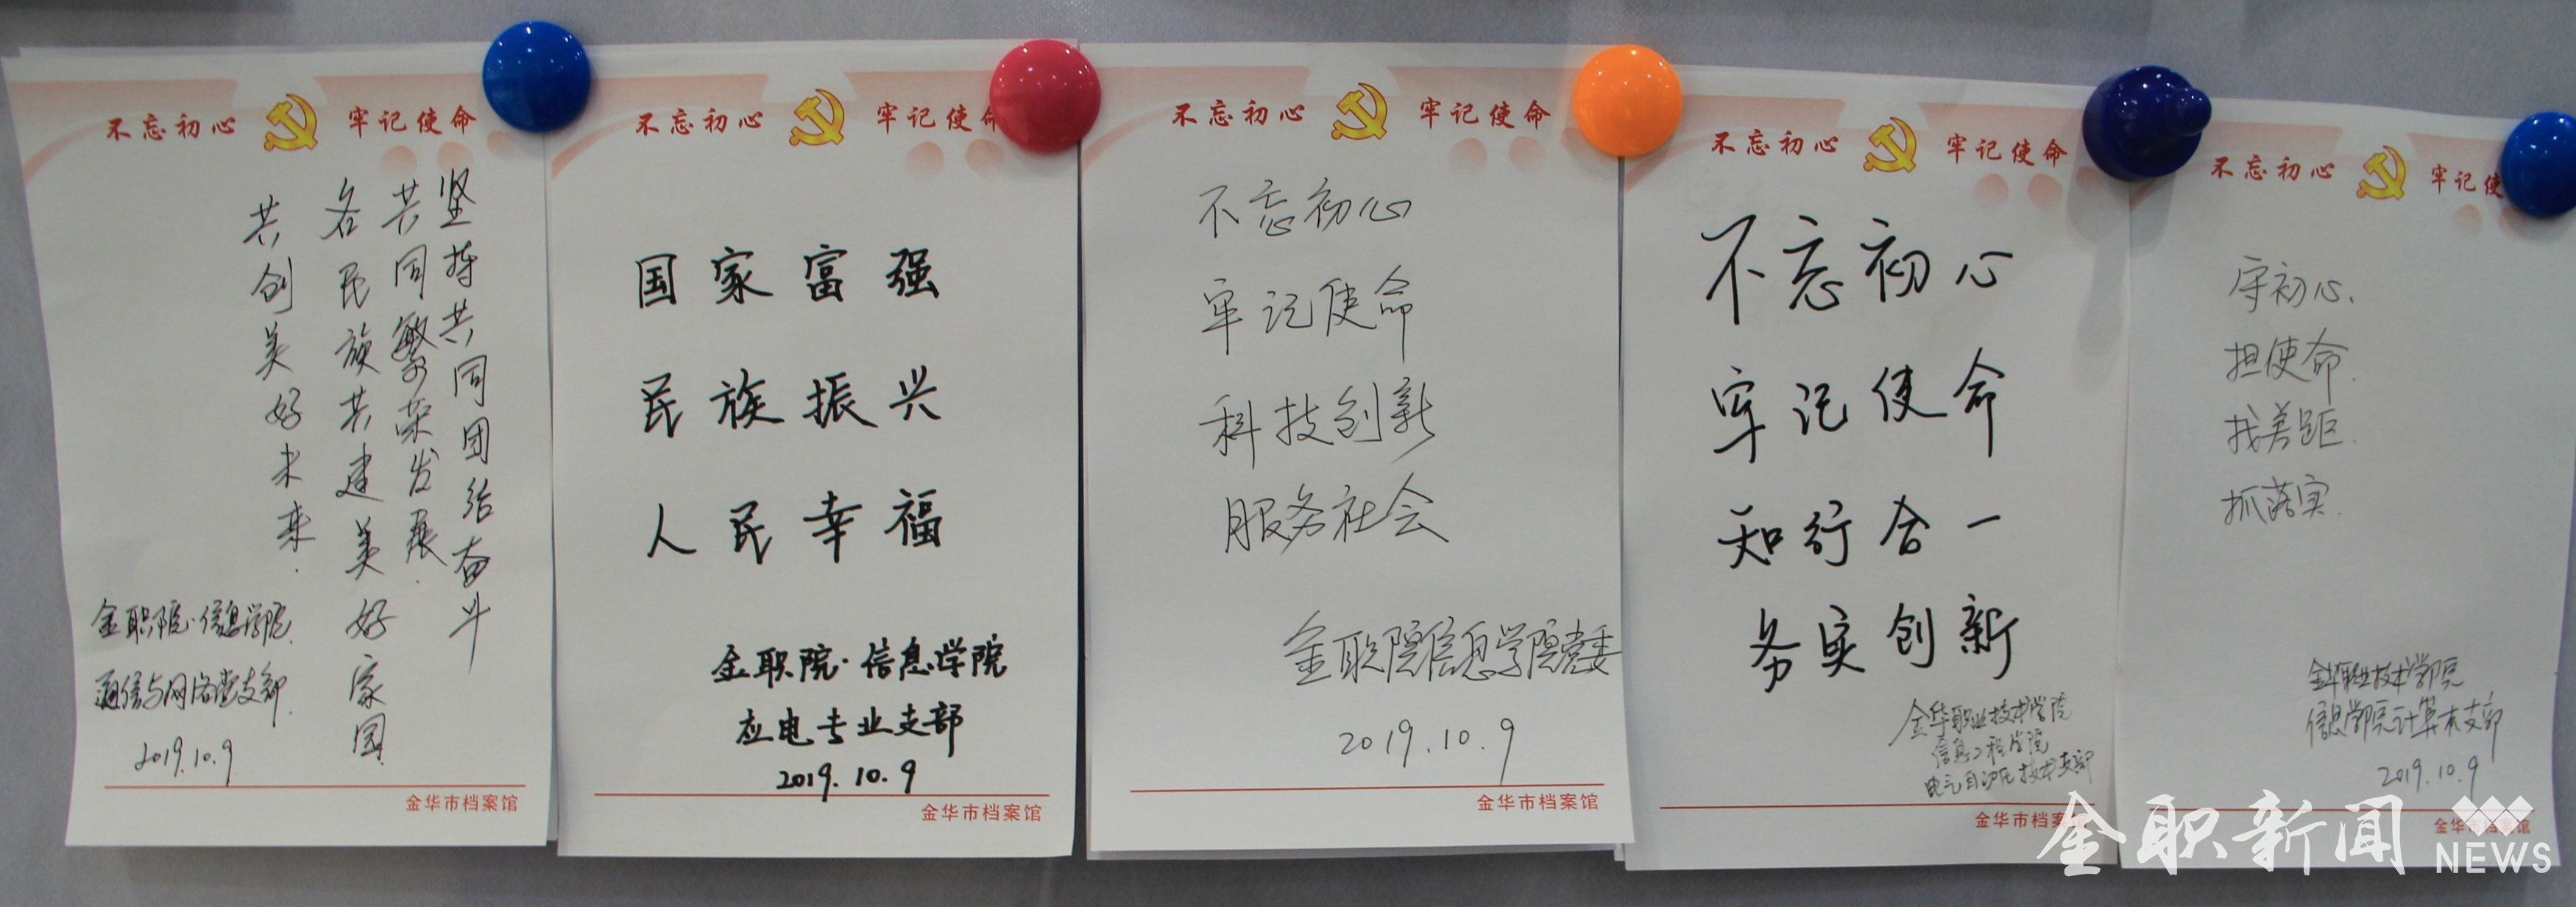 不忘初心 牢记使命
坚持共同团结奋斗
共同繁荣发展.
各民族共建美好家园
共创美好未来.
金职院·信息学院
通信与网络党支部
2019.10.9
金华市档案馆
不忘初心 牢记使命
国家富强
民族振兴
人民幸福
金职院·信息学院
应电专业支部
2019.10.9
金华市档案馆
不忘初心 牢记使命
不忘初心
牢记使命
科技创新
服务社会
金职院信息学院党委
2019.10.9
金华市档案馆
不忘初心 牢记使命
不忘初心
牢记使命
知行合一
务实创新
金华职业技术学院
信息工程学院
电气自动化技术支部
金华市档案馆
不忘初心 牢记使
守初心、
担使命.
找差距.
抓落实.
金华职业技术学院
信息学院计算机支部
2019.10.9
金华市档案馆
金职新闻 NEWS